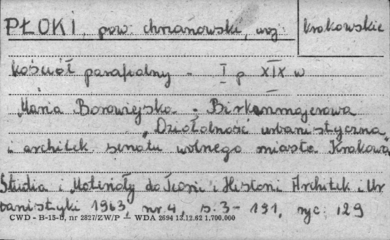 PŁOKI, pow. chrzanowski, woj: krakowskie
kościół parafialny - I p XIX w
Maria Borowiejska - Birkenmajerowa
"Działalność urbanistyczna
i architek senatu wolnego miasta Krakowa
Studia i Materiały do Teorii i Historii Architek i Ur
banistyki 1963 nr. 4, s. 3 - 191, ryc. 129
CWD - B-15-b, nr 2827/ZW/P WDA 2694 12.12.62 1.700.000